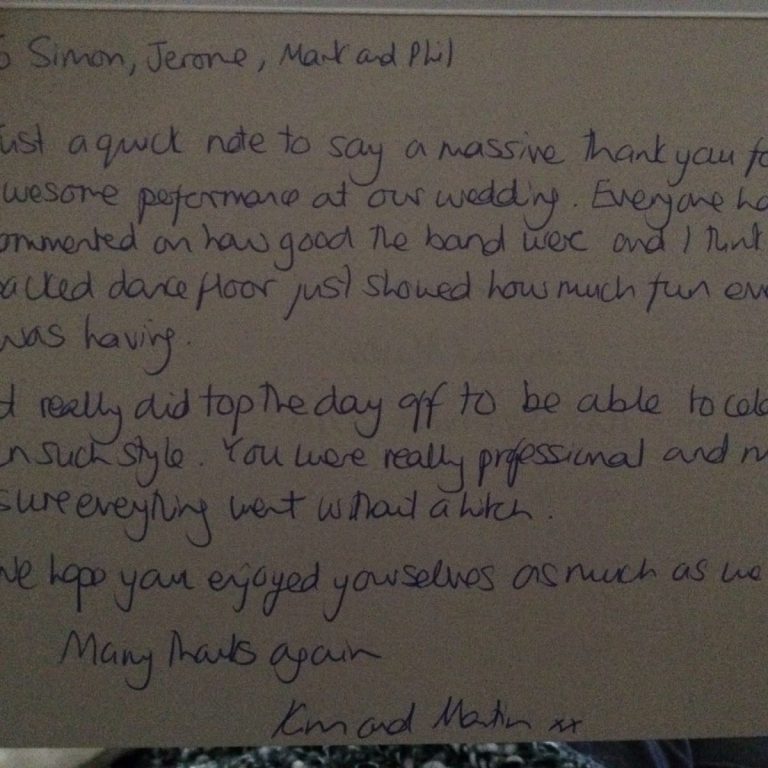 o Simon, Jerome, Mark and Phil
ust a quick note to say a massive thank you fo
wesome peformance at our wedding. Everyone ha
ommented on how good the band were and I think
acked dance floor just showed how much fun eve
was having.
t really did top the day off to be able to cele
n such style. You were really professional and m
sure everything went without a hitch.
We hope you enjoyed yourselves as much as we
Many thanks again
Kim and Martin xx